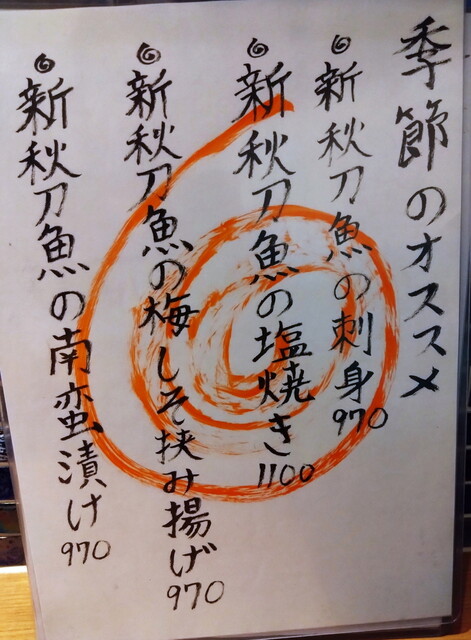 季節のオススメ
新秋刀魚の刺身970
新秋刀魚の塩焼き1100
新秋刀魚の梅しそ挟み揚げ970
新秋刀魚の南蛮漬け970